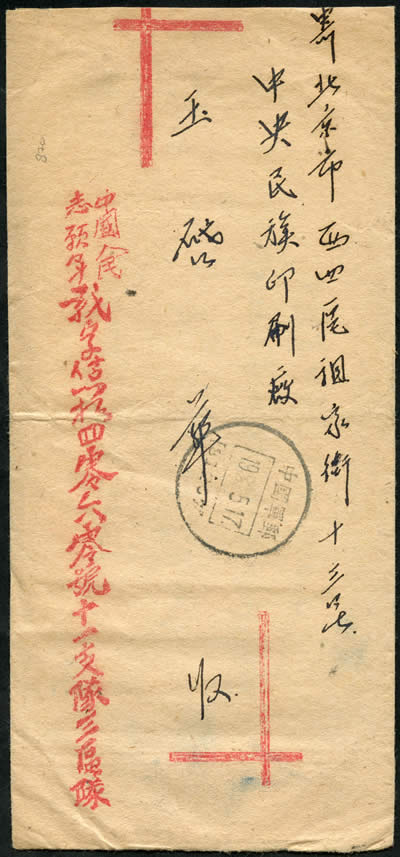 北京市西四區祖家街十三号
中央民族印刷廠
王 華 收
中國人民
志願軍
战字信箱四零六零號十一支隊三區隊
中國軍郵